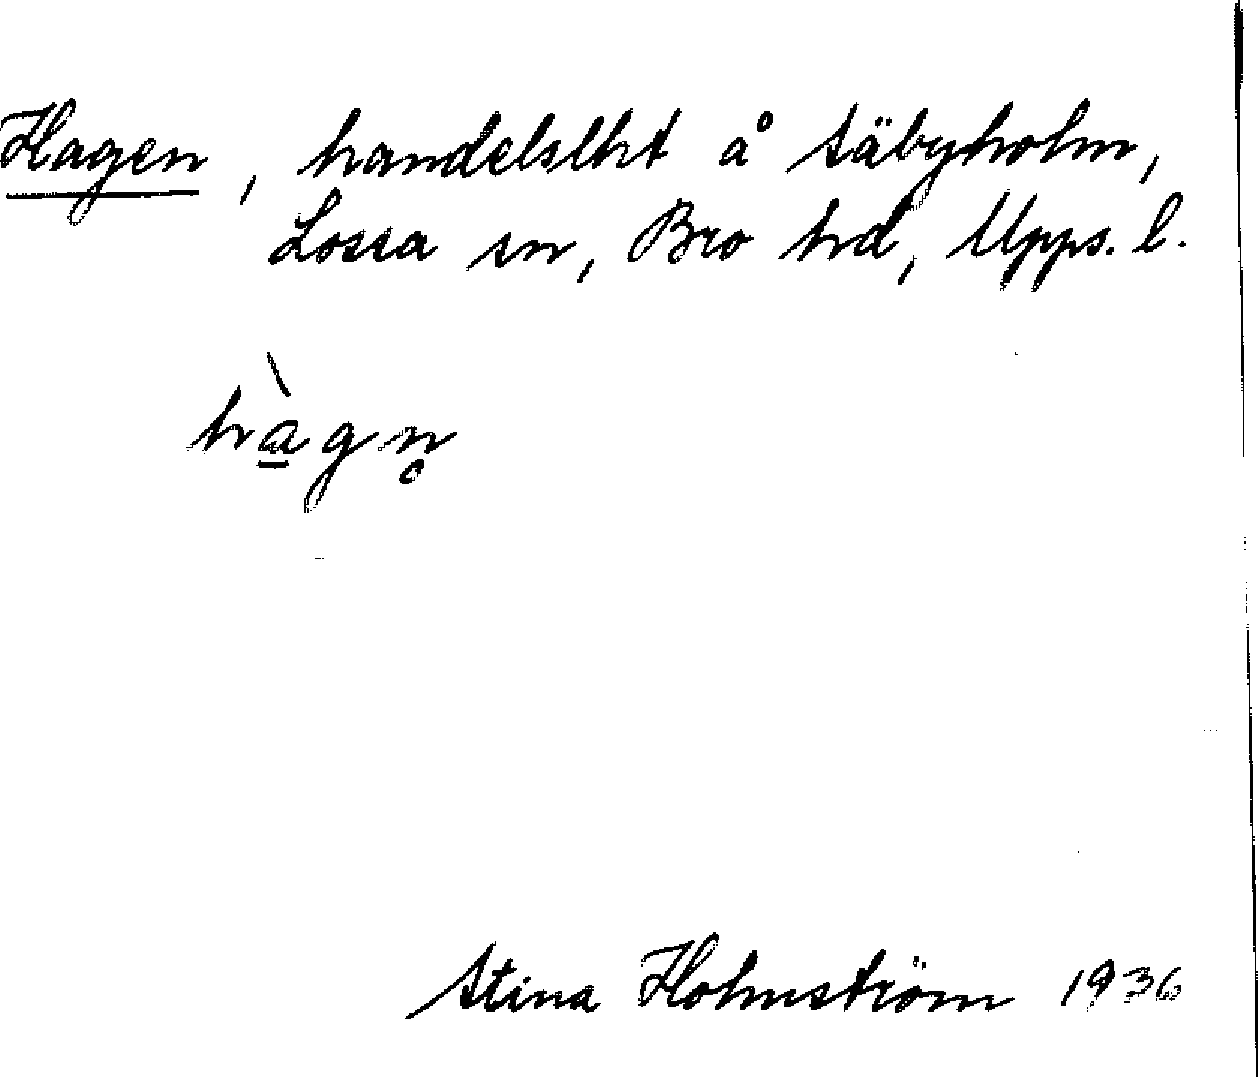 Hagen, handelslht å Säbyholm,
Lossa sn, Bro hd, Upps. l.
hà̱gn̥
Stina Holmström 1936